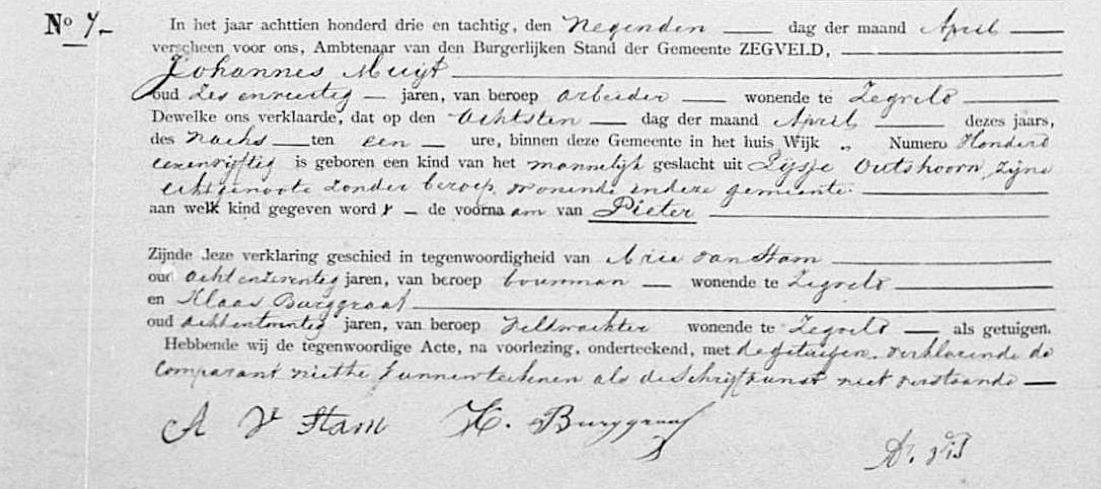 No 7.
In het jaar achttien honderd drie en tachtig, den Negenden dag der maand April
verscheen voor ons, Ambtenaar van den Burgerlijken Stand der Gemeente ZEGVELD,
Johannes Muijt
oud zes en veertig jaren, van beroep arbeider wonende te Zegveld
Dewelke ons verklaarde, dat op den Achtsten dag der maand April dezes jaars,
des Nachts ten een ure, binnen deze Gemeente in het huis Wijk „ Numero Honderd
eenenvijftig is geboren een kind van het mannelijk geslacht uit Pijsje Outshoorn, zijne
echtgenoote zonder beroep, wonende in deze gemeente.
aan welk kind gegeven word t de voornaam van Pieter
Zijnde deze verklaring geschied in tegenwoordigheid van Arie van Stam
oud achtenzeventig jaren, van beroep bouwman wonende te Zegveld
en Klaas Burggraaf
oud achtentwintig jaren, van beroep Veldwachter wonende te Zegveld als getuigen.
Hebbende wij de tegenwoordige Acte, na voorlezing, onderteekend, met de getuigen, verklarende de
Comparant niet te kunnen teekenen als de schrijfkunst niet verstaande
A v Stam K. Burggraaf
D. Vis